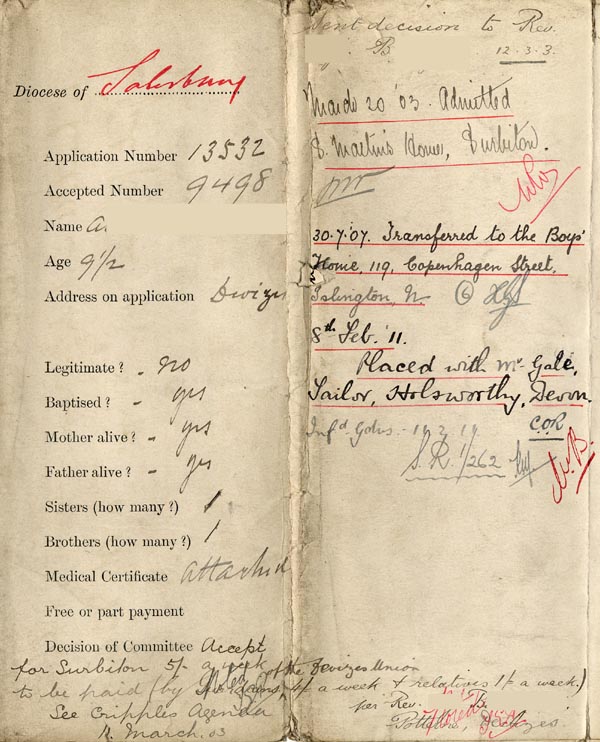 Diocese of Salisbury
Application Number 13532
Accepted Number 9498
Name A.
Age 9½
Address on application Devizes
Legitimate? - no
Baptised? - yes
Mother alive? - yes
Father alive? - yes
Sisters (how many?) 1
Brothers (how many?) 1
Medical Certificate attached
Free or part payment
Decision of Committee Accept
for Surbiton 5/- a week
of the Devizes Union
to be paid (by 4/- a week & relatives 1/- a week.)
See Cripples Agenda
12 March, 03
per Rev. B.
Potterne, Devizes.
Sent decision to Rev.
B. 12.3.3.
March 20 '03. Admitted
S. Martin's Home, Surbiton.
30.7.'07. Transferred to the Boys'
Home, 119, Copenhagen Street,
Islington, N. 6
8th Feb. '11.
Placed with Mr Gale,
Tailor, Holsworthy, Devon.
C.O.R.
Infd Gdns. 19
S.R. 1/262